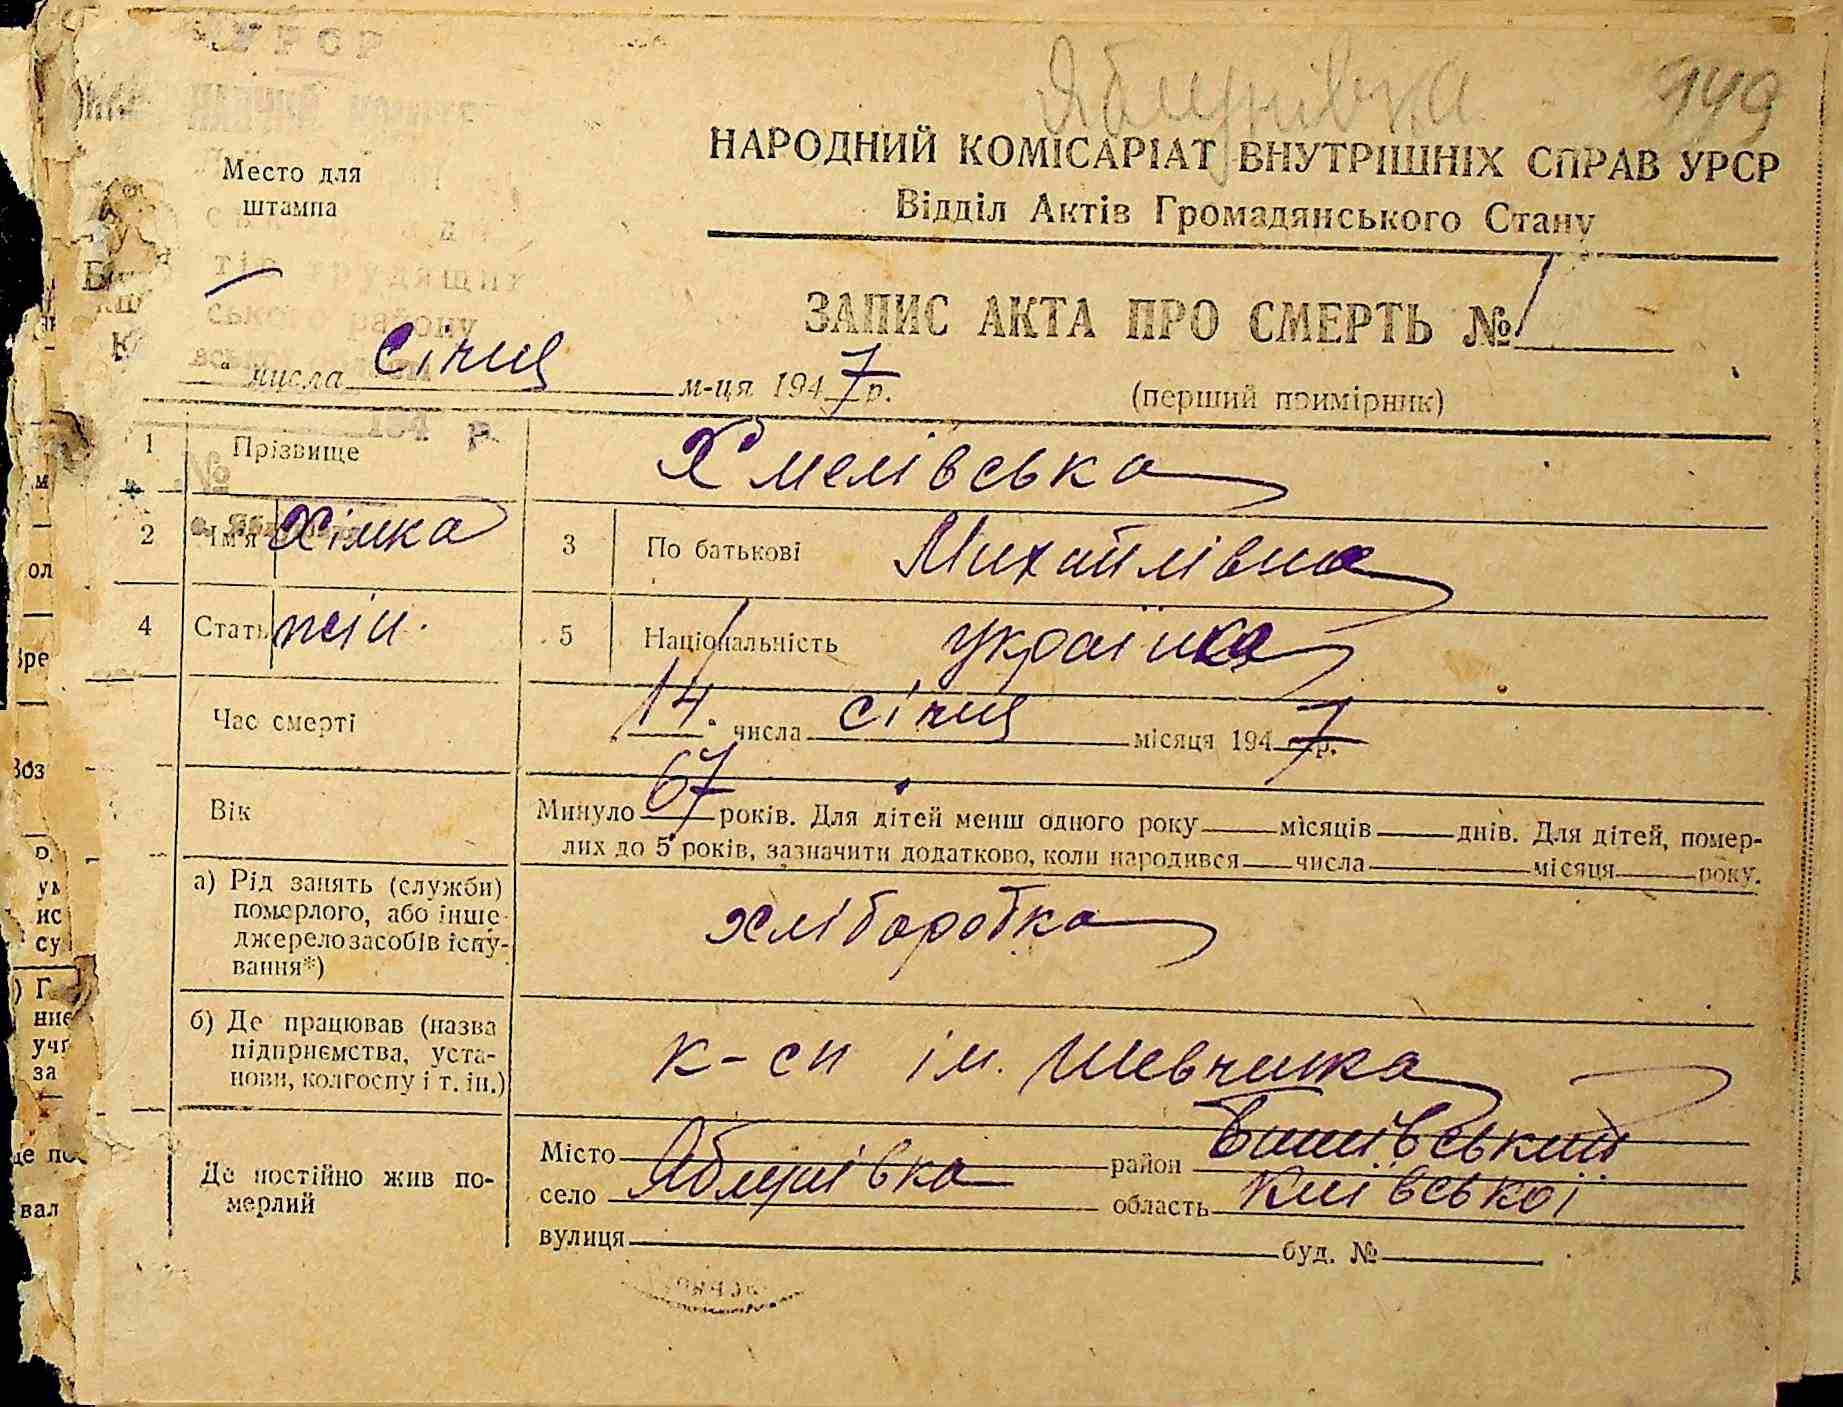 УРСР
Яблунівка 149
НАРОДНИЙ КОМІСАРІАТ ВНУТРІШНІХ СПРАВ УРСР
Відділ Актів Громадянського Стану
Место для
штампа
тів трудящих
ського району
ЗАПИС АКТА ПРО СМЕРТЬ № 1
числа січня м-ця 1947 р.
(перший примірник)
194 р.
№
1 Прізвище Хмелівська
2 Ім'я Хімка 3 По батькові Михайлівна
4 Стать жін. 5 Національність українка
Час смерті 14. числа січня місяця 1947 р.
Вік Минуло 67 років. Для дітей менш одного року місяців днів. Для дітей, помер-
лих до 5 років, зазначити додатково, коли народився числа місяця року.
а) Рід занять (служби)
померлого, або інше
джерело засобів існу-
вання*)
хліборобка
б) Де працював (назва
підприємства, уста-
нови, колгоспу і т. ін.)
к-сп ім. Шевченка
Де постійно жив по-
мерлий
Місто район
село Яблунівка область Київської
вулиця буд. №